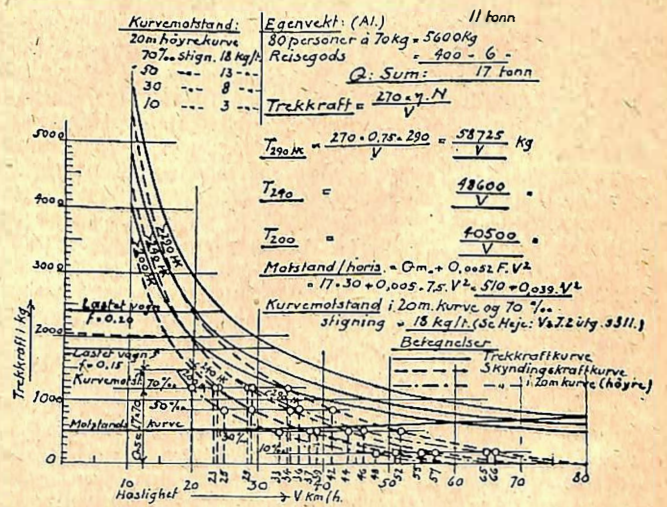 Kurvemotstand:
20m høyrekurve
70‰ stign. 18 kg/t.
50 -"- 13 -"-
30 -"- 8 -"-
10 -"- 3 -"-
Egenvekt: (Al.) 11 tonn
80 personer à 70kg = 5600kg
Reisegods = 400 - 6 -
Q: Sum: 17 tonn
Trekkraft = 270.η.N / V
T290HK = 270.0,75.290 / V = 58725 / V kg
T240 = 48600 / V "
T200 = 40500 / V "
Motstand/horis. = Q.m. + 0,0052 F.V²
= 17.30 + 0,005.7,5.V² = 510 + 0,039.V²
Kurvemotstand i 20m. kurve og 70 ‰
stigning = 18 kg/t.
Betegnelser
Trekkraftkurve
Skyndingskraftkurve
-"- i 20m kurve (høyre)
5000
4000
3000
2000
1000
0
Trekkraft i kg
Lastet vogn
f=0.20
Lastet vogn
f=0.15
Kurvemotst. 70‰
50‰
Motstands kurve
30‰
10‰
290 HK
240 HK
200 HK
10 20 30 40 50 60 70 80
23 25 29 33 42 44 46 48 52 55 57 65 66
Hastighet V km/h.